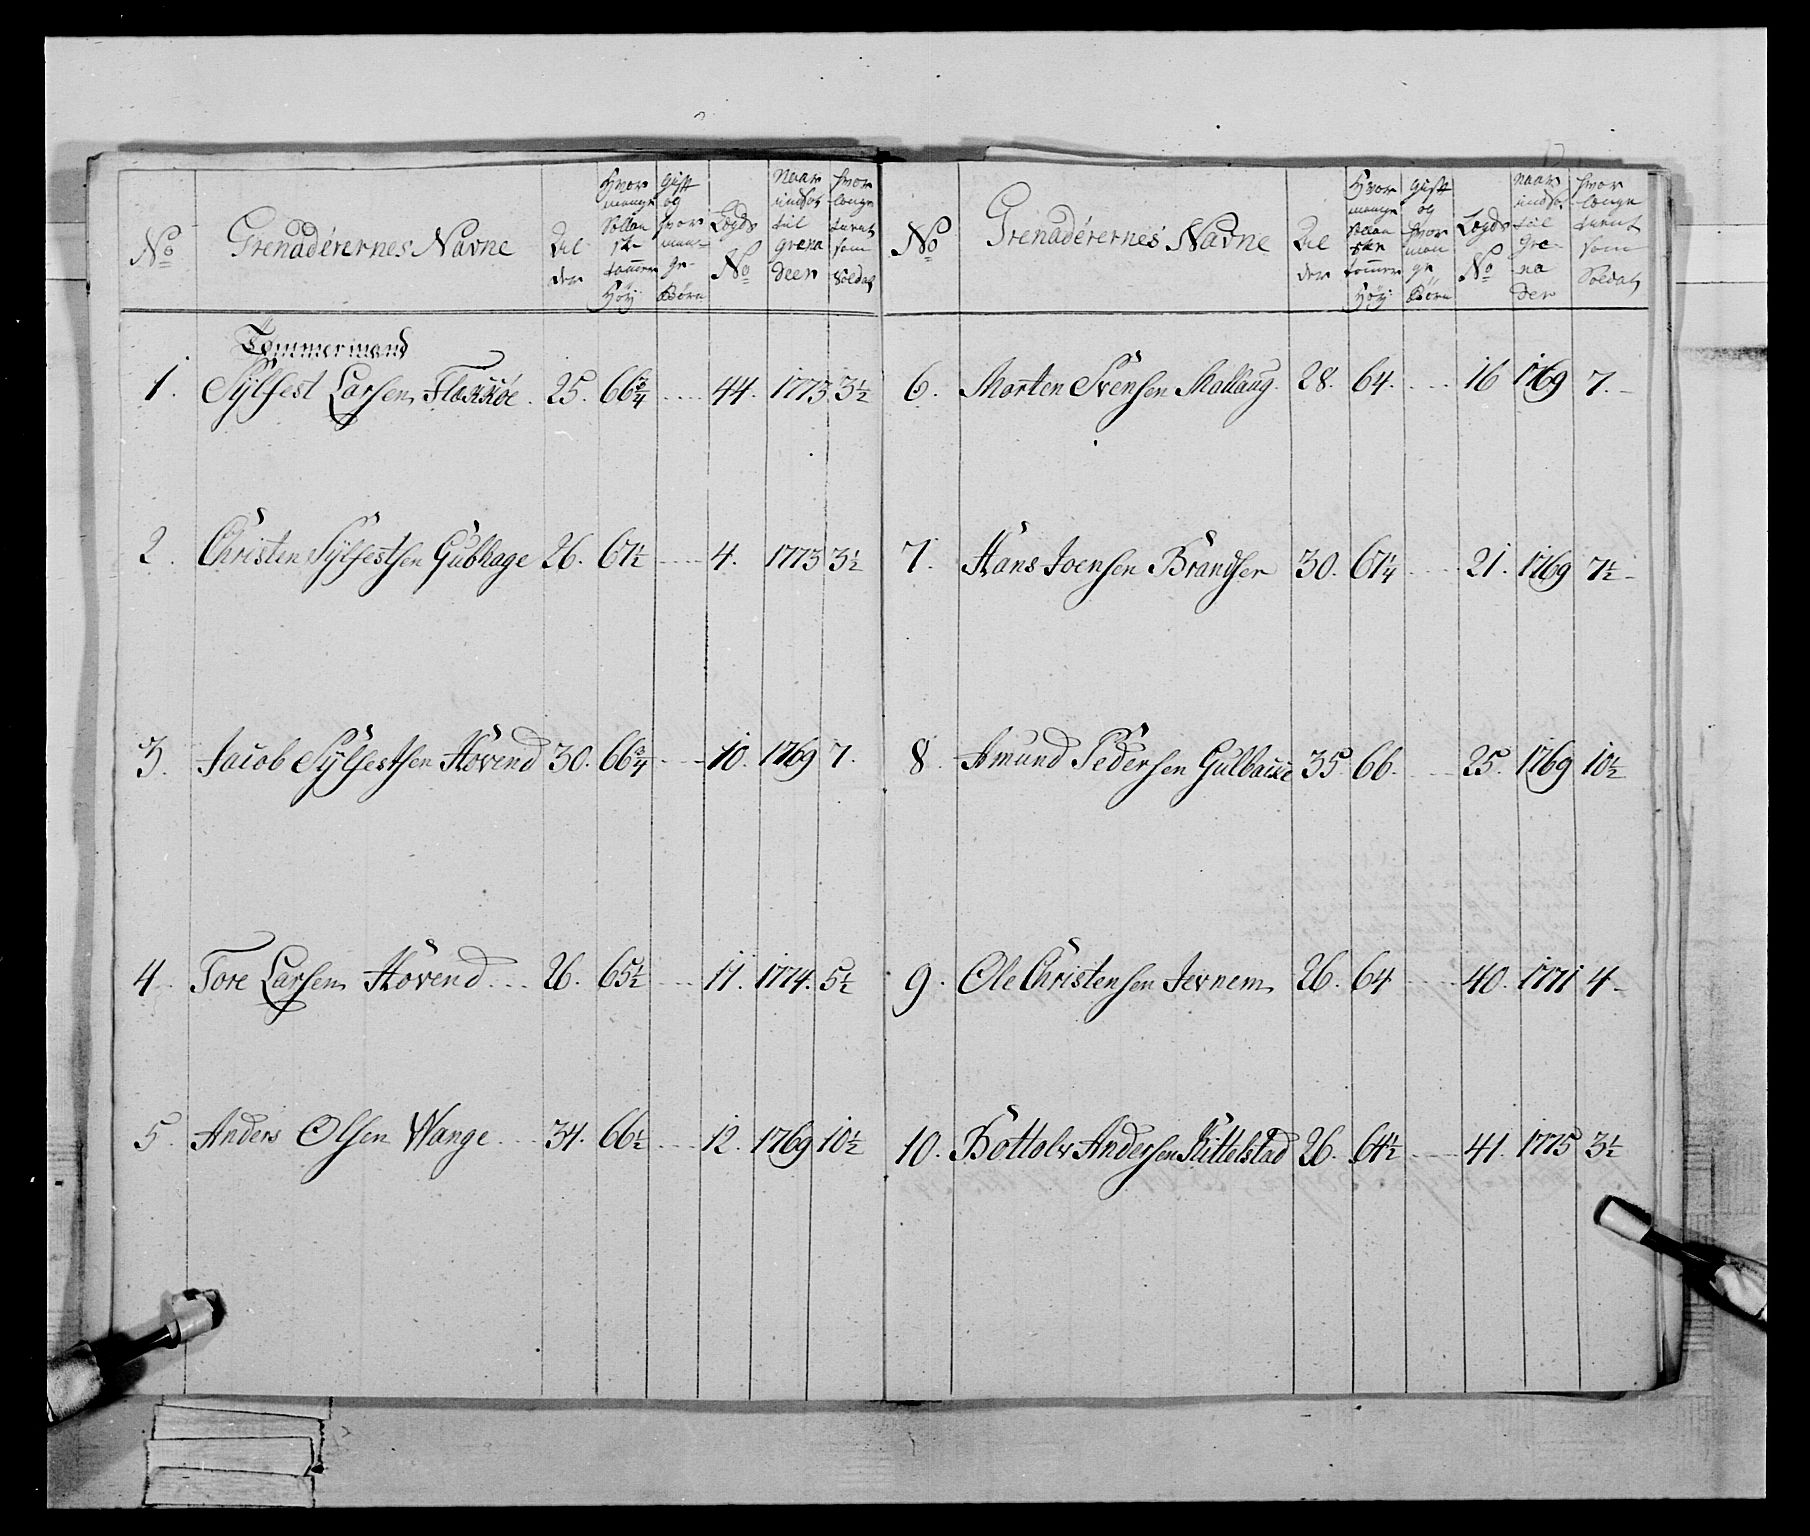 No Grenadérernes Navne Al der Hvor mange Sollan sk tommer Höÿ Gift og hvor man ge Börn Lægds No Naar indsat til grena deer hvor længe tiænt som Soldat
Tommermand
1. Sÿlfest Larsen 25. 66 3/4 .... 44. 1773 3 1/2
2. Christen Sÿlfestsen Gübhage 26. 67 1/2 .... 4. 1773 3 1/2
3. Jacob Sÿlfestsen Hövend 30. 66 3/4 .... 10. 1769 7.
4. Tore Larsen Hövend... 26. 65 1/2 .... 11. 1774. 5 1/2
5. Anders Olsen Wange... 34. 66 1/2 .... 12. 1769 10 1/2
No Grenadérernes Navne Al der Hvor mange Sollan ske tommer Höÿ Gift og hvor man ge Börn Lægds No naar indsat til Gre- na der hvor længe tiænt som Soldat
6. Morten Svensen 28. 64. .... 16 1769 7.
7. Hans Joensen Brandser 30. 67 1/4 .... 21. 1769 7 1/2
8. Amund Pedersen 35. 66. .... 25. 1769 10 1/2
9. Ole Christensen Jevnem 26. 64 .... 40. 1771 4
10. Bottolv Andersen Kittelstad 26. 64 1/2 .... 41. 1775 3 1/2